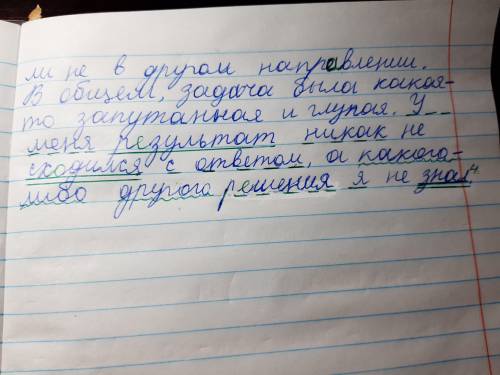 ли не в другом направлении.
В общем, задача была какая-
то запутанная и глупая. У
меня результат никак не
сходился с ответом, а какого-
либо другого решения я не знал⁴.